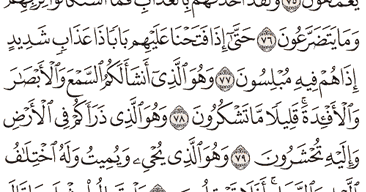 يَعْمَهُونَ ٧٥ وَلَقَدْ أَخَذْنَٰهُم بِٱلْعَذَابِ فَمَا ٱسْتَكَانُوا۟ لِرَبِّهِمْ
وَمَا يَتَضَرَّعُونَ ٧٦ حَتَّىٰٓ إِذَا فَتَحْنَا عَلَيْهِم بَابًا ذَا عَذَابٍ شَدِيدٍ
إِذَا هُمْ فِيهِ مُبْلِسُونَ ٧٧ وَهُوَ ٱلَّذِىٓ أَنشَأَ لَكُمُ ٱلسَّمْعَ وَٱلْأَبْصَٰرَ
وَٱلْأَفْـِٔدَةَ ۚ قَلِيلًا مَّا تَشْكُرُونَ ٧٨ وَهُوَ ٱلَّذِى ذَرَأَكُمْ فِى ٱلْأَرْضِ
وَإِلَيْهِ تُحْشَرُونَ ٧٩ وَهُوَ ٱلَّذِى يُحْىِۦ وَيُمِيتُ وَلَهُ ٱخْتِلَٰفُ